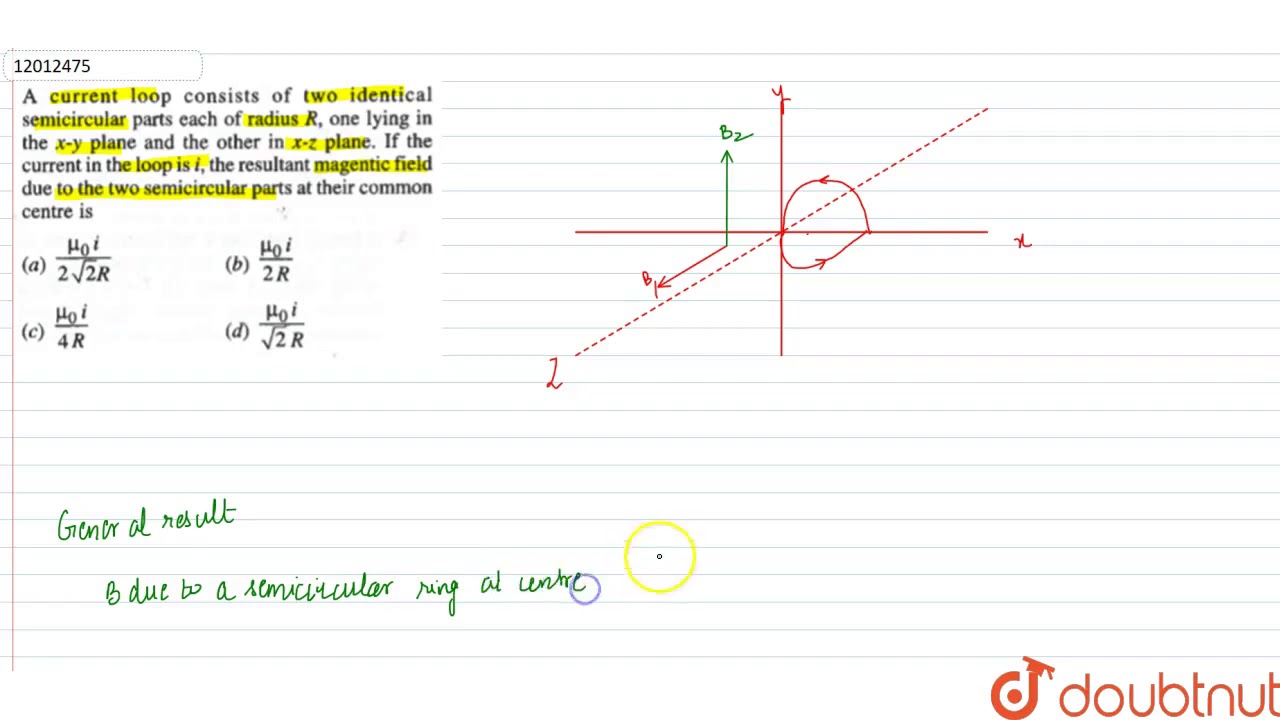 12012475
A current loop consists of two identical
semicircular parts each of radius R, one lying in
the x-y plane and the other in x-z plane. If the
current in the loop is i, the resultant magentic field
due to the two semicircular parts at their common
centre is
(a) μ₀ i / 2√2R (b) μ₀ i / 2R
(c) μ₀ i / 4R (d) μ₀ i / √2 R
y
B2
x
B1
Z
General result
B due to a semicircular ring at centre
doubtnut